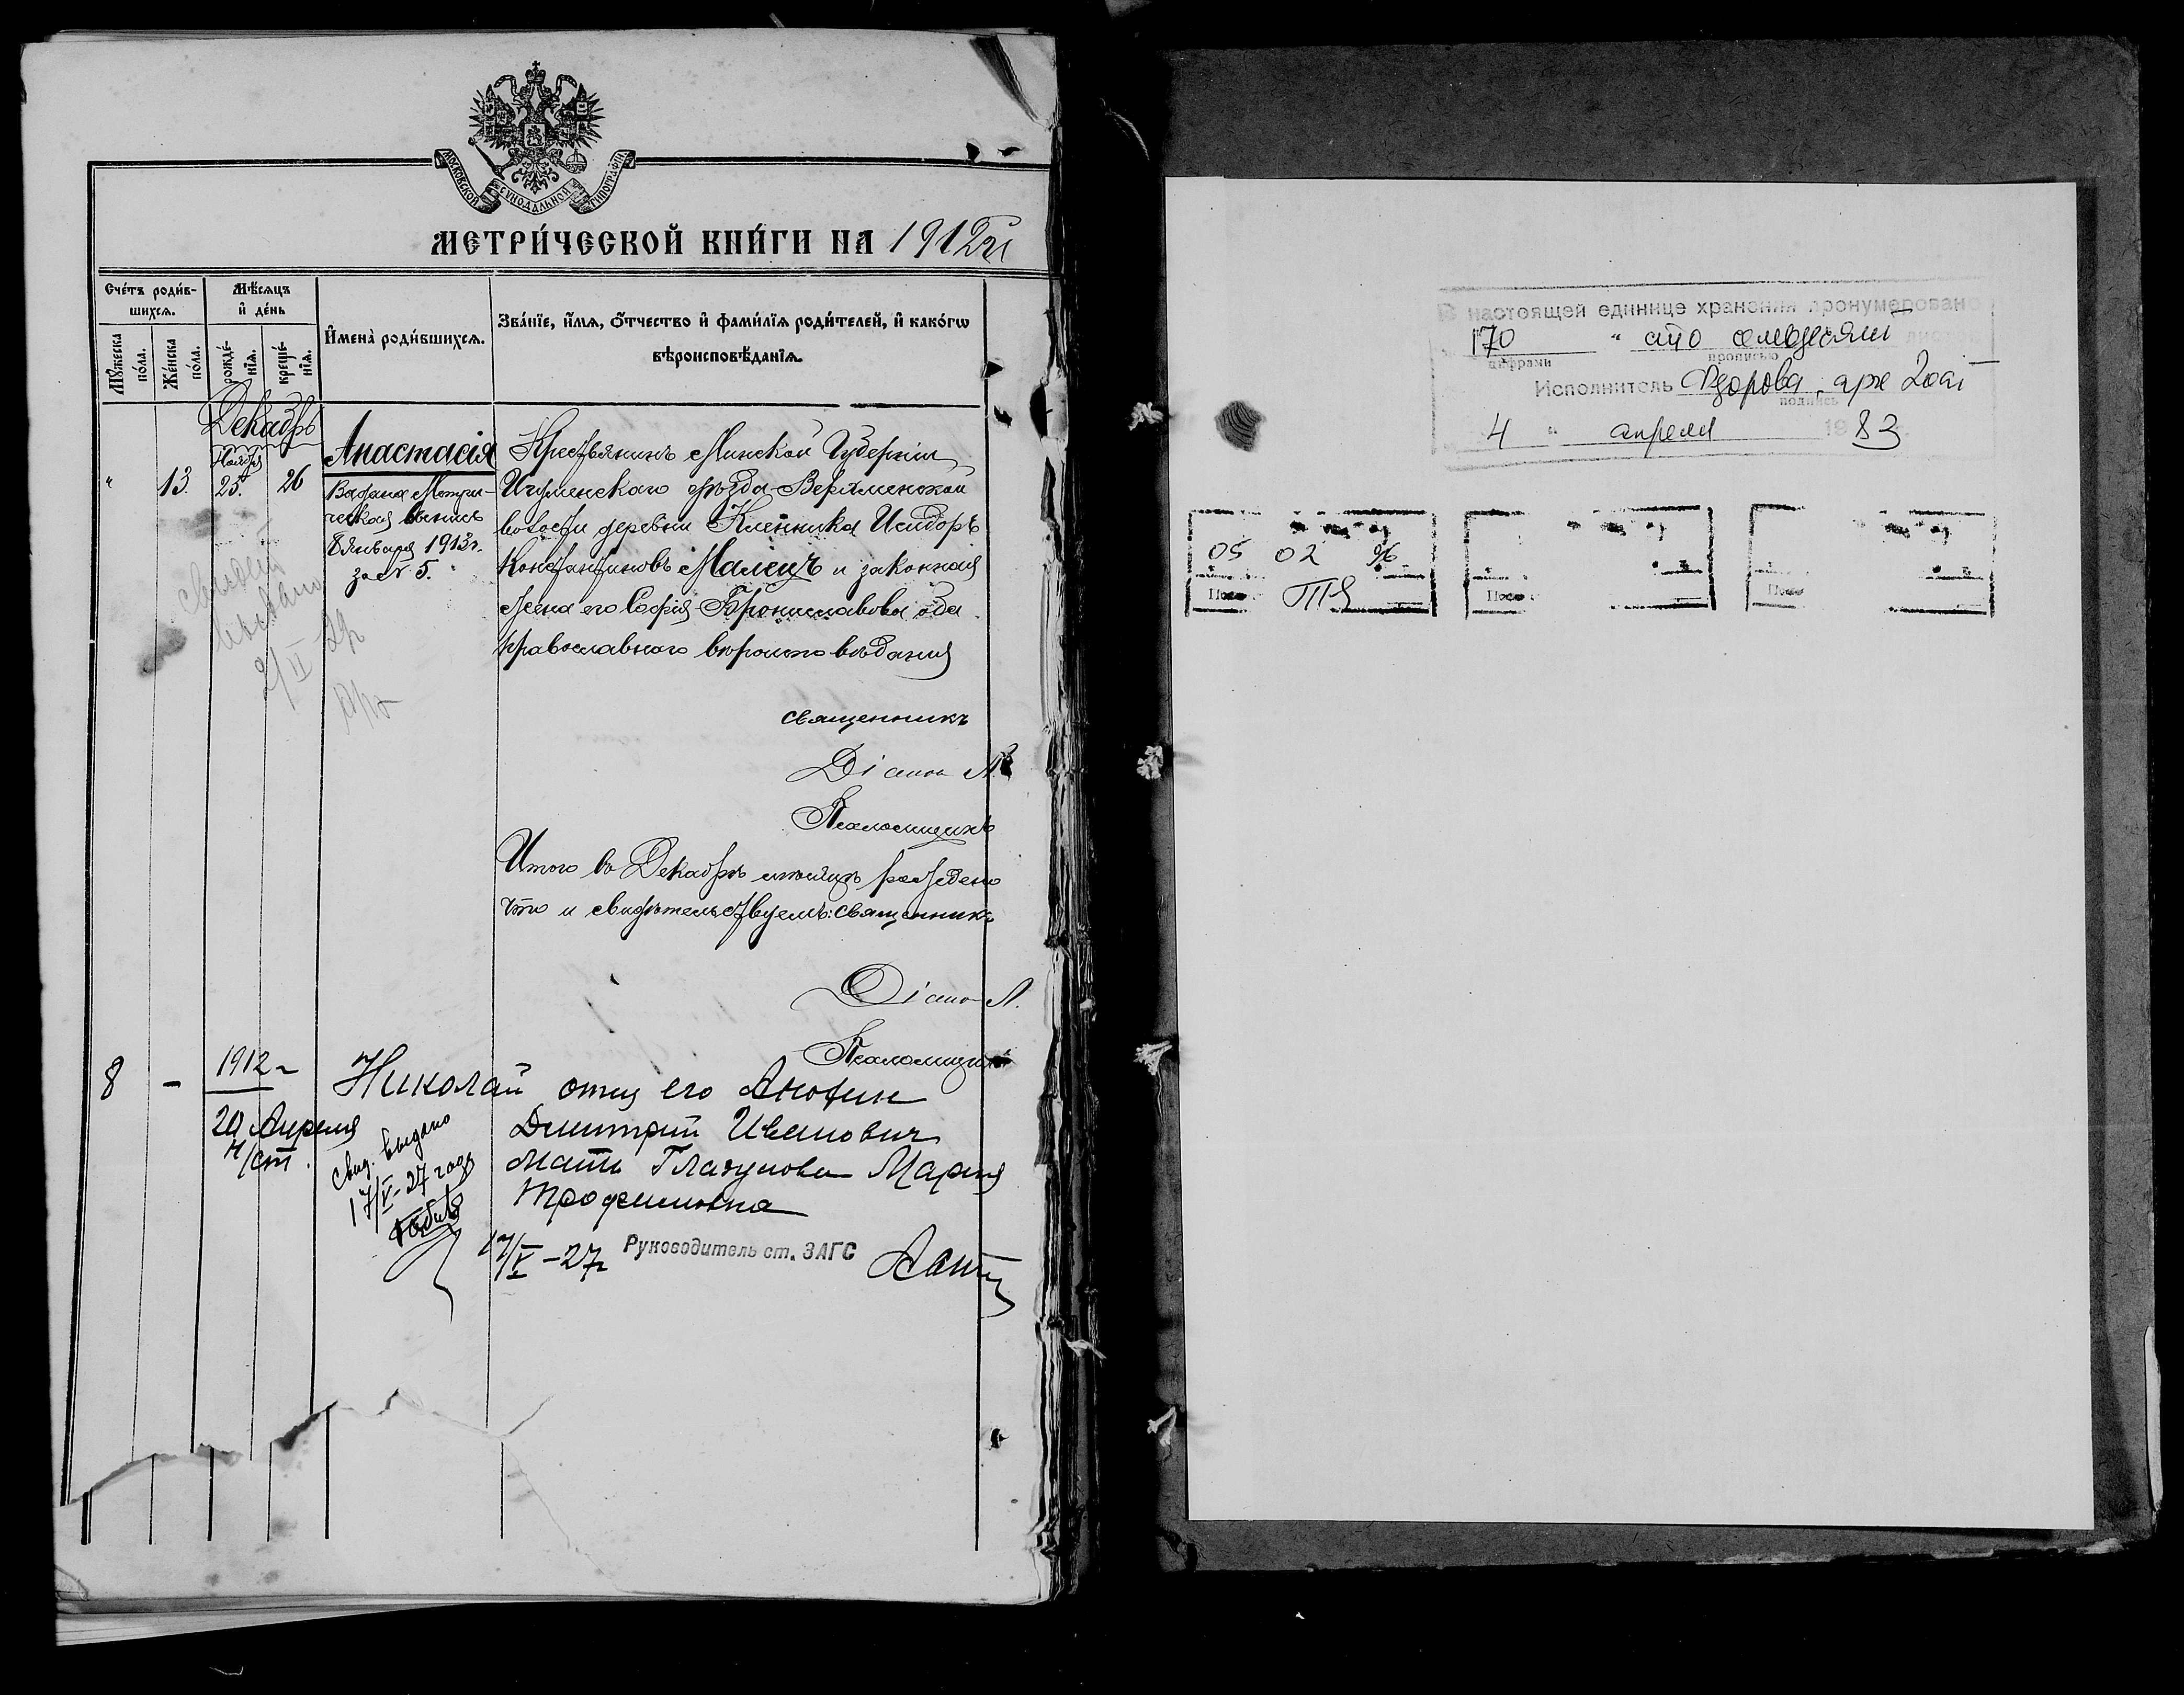 МОСКОВСКОЙ СѴНОДАЛЬНОЙ ТИПОГРАФІИ
МЕТРИ́ЧЕСКОЙ КНИ́ГИ НА 1912 г.
Сче́тъ роди́в-
шихсѧ.
Мꙋ́жеска
по́ла.
Же́нска
по́ла.
Мѣ́сѧцъ
и҆ де́нь
рожде́-
нїѧ.
креще́-
нїѧ.
И҆мена̀ роди́вшихсѧ.
Зва́нїе, и҆́мѧ, ѻ҆́тчество и҆ фами́лїѧ роди́телей, и҆ како́гѡ
вѣроисповѣ́данїѧ.
Декабрь
"
13.
Ноября
25.
26
Анастасія
Выдана Метри-
ческая выпись
8 Января 1913 г.
за № 5.
выдано
2/II
Крестьянинъ Минской Губерніи
Игуменскаго уѣзда
волости деревни Кленника Исидоръ
Константиновъ Малецъ и законная
жена его Софія Брониславова оба
православнаго вѣроисповѣданія
священникъ
Діаконъ Л.
Псаломщикъ
Итого въ Декабрѣ мѣсяцѣ рождено
что и свидѣтельствуемъ: священникъ
Діаконъ Л.
Псаломщикъ
8
-
1912 г
20 Апреля
н/ст.
Николай отец его Анохин
Дмитрий Иванович
Мать Глазунова Мария
Трофимовна
свид. выдано
17/V-27 года
17/V-27 г
Руководитель ст. ЗАГС
В настоящей единице хранения пронумеровано
170 " сто семьдесят листов
цифрами
прописью
Исполнитель
подпись
4 " апреля 1983
05 02 96